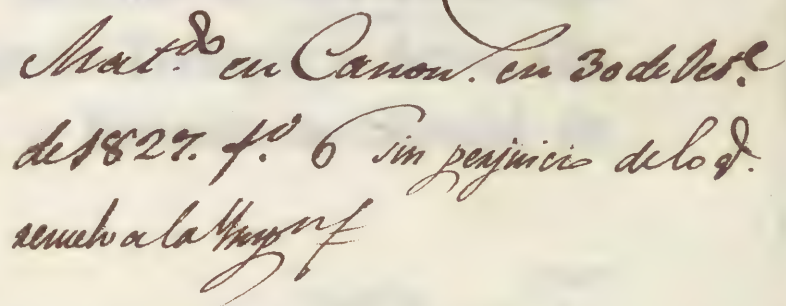 Mat.do en Canon. en 30 de Oct.e
de 1827. f.o 6 sin perjuicio de lo q.
resuelva la